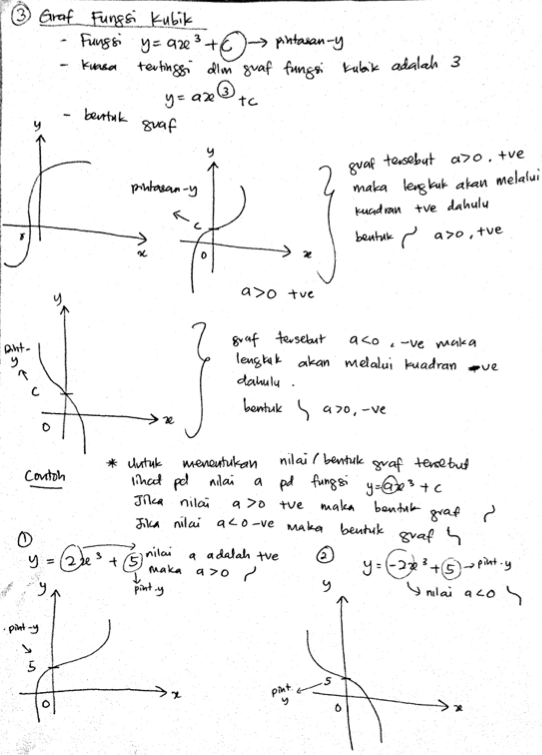 ③ Graf Fungsi Kubik
- Fungsi y = ax³ + c → pintasan-y
- kuasa tertinggi dlm graf fungsi kubik adalah 3
y = ax³ + c
- bentuk graf
y
x
y
pintasan-y
c
0
x
a>0 +ve
graf tersebut a>0, +ve
maka lengkuk akan melalui
kuadran +ve dahulu
bentuk a>0, +ve
y
pint-
y
c
0
x
graf tersebut a<0, -ve maka
lengkuk akan melalui kuadran -ve
dahulu.
bentuk a>0, -ve
Contoh
* Untuk menentukan nilai/bentuk graf tersebut
lihat pd nilai a pd fungsi y = ax³ + c
Jika nilai a>0 +ve maka bentuk graf
Jika nilai a<0 -ve maka bentuk graf
①
y = 2x³ + 5 nilai a adalah +ve
maka a>0
pint-y
y
pint-y
5
0
x
②
y = -2x³ + 5 → pint-y
nilai a<0
y
5
pint-
y
0
x